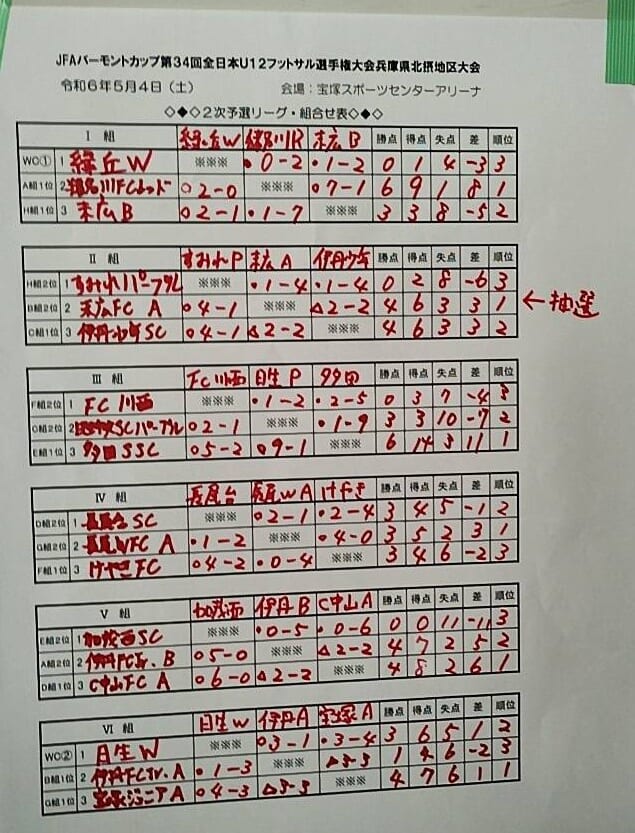 JFAバーモントカップ第34回全日本U12フットサル選手権大会兵庫県北摂地区大会
令和6年5月4日（土） 会場：宝塚スポーツセンターアリーナ
◇◆◇２次予選リーグ・組合せ表◇◆◇
Ⅰ 組 緑丘W 猪名川R 末広B 勝点 得点 失点 差 順位
WC① 1 緑丘W ※※※ ・0-2 ・1-2 0 1 4 -3 3
A組1位 2 猪名川FCレッド ○2-0 ※※※ ○7-1 6 9 1 8 1
H組1位 3 末広B ○2-1 ・1-7 ※※※ 3 3 8 -5 2
Ⅱ 組 すみれP 末広A 伊丹少年 勝点 得点 失点 差 順位
H組2位 1 すみれパープル ※※※ ・1-4 ・1-4 0 2 8 -6 3
B組2位 2 末広FC A ○4-1 ※※※ △2-2 4 6 3 3 1 ←抽選
C組1位 3 伊丹少年SC ○4-1 △2-2 ※※※ 4 6 3 3 2
Ⅲ 組 FC川西 日生P 多田 勝点 得点 失点 差 順位
F組2位 1 FC川西 ※※※ ・1-2 ・2-5 0 3 7 -4 3
C組2位 2 SCパープル ○2-1 ※※※ ・1-9 3 3 10 -7 2
E組1位 3 多田SSC ○5-2 ○9-1 ※※※ 6 14 3 11 1
Ⅳ 組 長尾台 長尾WA けやき 勝点 得点 失点 差 順位
D組2位 1 長尾台SC ※※※ ○2-1 ・2-4 3 4 5 -1 2
G組2位 2 長尾WFC A ・1-2 ※※※ ○4-0 3 5 2 3 1
F組1位 3 けやきFC ○4-2 ・0-4 ※※※ 3 4 6 -2 3
Ⅴ 組 加茂西 伊丹B C中山A 勝点 得点 失点 差 順位
E組2位 1 加茂西SC ※※※ ・0-5 ・0-6 0 0 11 -11 3
A組2位 2 伊丹FCJr.B ○5-0 ※※※ △2-2 4 7 2 5 2
D組1位 3 C中山FC A ○6-0 △2-2 ※※※ 4 8 2 6 1
Ⅵ 組 日生W 伊丹A 宝塚A 勝点 得点 失点 差 順位
WC② 1 日生W ※※※ ○3-1 ・3-4 3 6 5 1 2
B組1位 2 伊丹FCJr.A ・1-3 ※※※ △3-3 1 4 6 -2 3
G組1位 3 宝塚ジュニアA ○4-3 △3-3 ※※※ 4 7 6 1 1